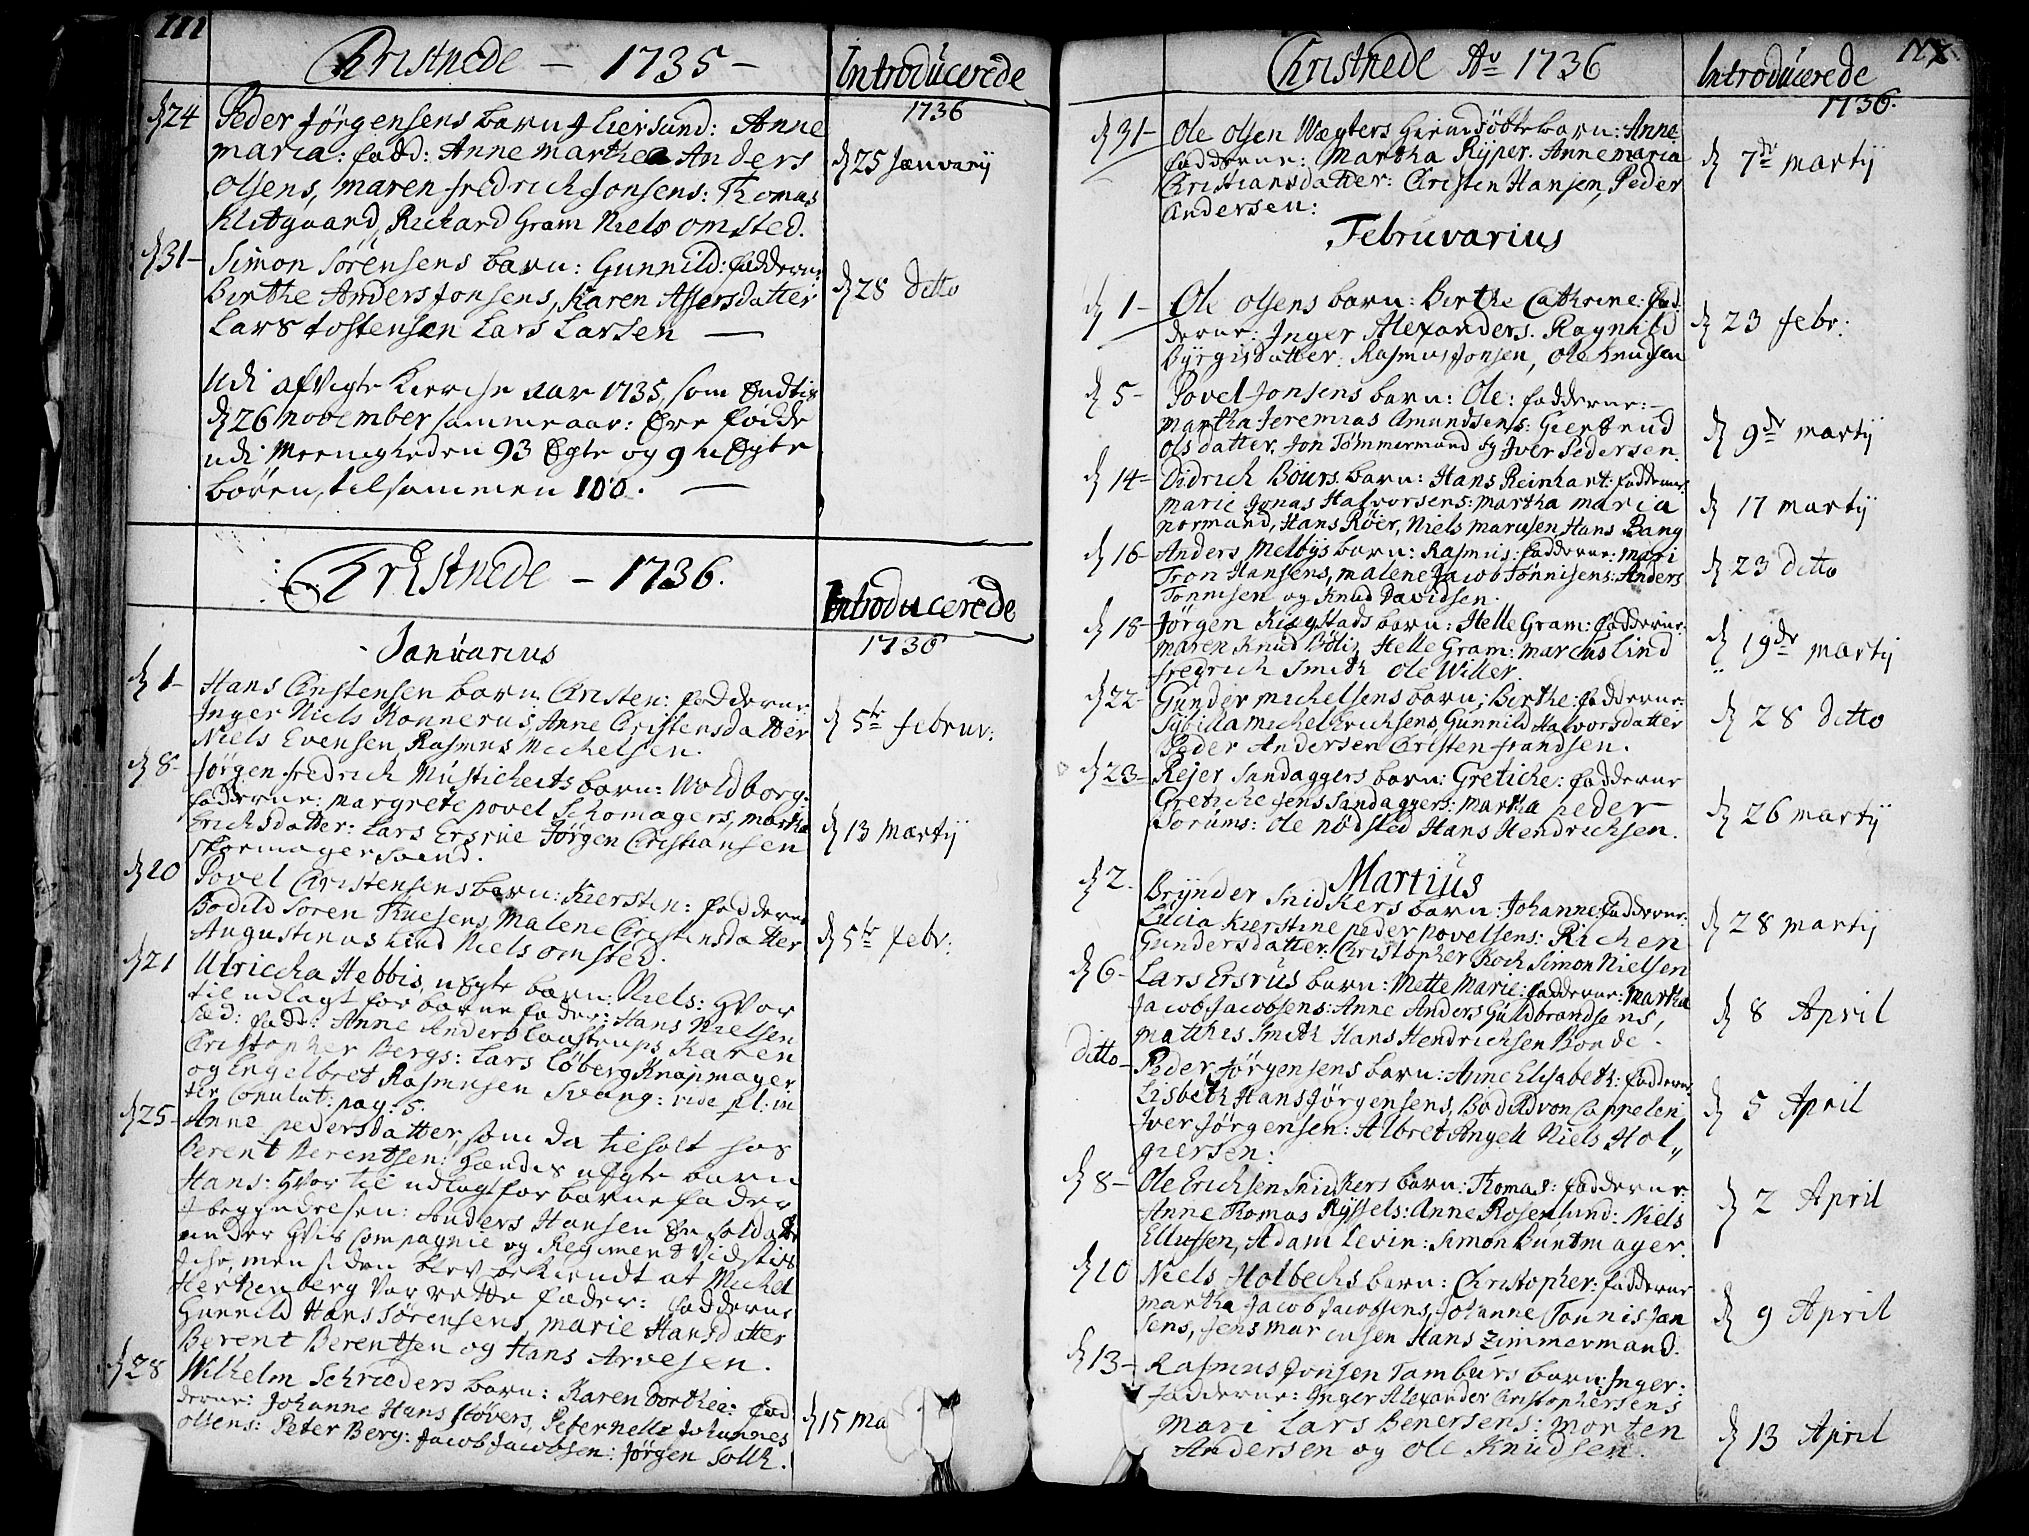 111
Christnede - 1735 -
Introducerede
1736
d 24 Peder Jørgensens barn f Liersund: Anne
maria: fadd: Anne Marthea Anders
Olsens, maren fredrich Jonsens: Thomas
Klitgaard, Richard Gram Niels omsted.
d 25 Januarij
d 31 - Simon Sørensens barn: Gunnild: fadderne
Birthe Anders Jonsens, Karen Assersdatter
Lars Tostensen Lars Larsen —
d 28 Ditto
Udi afvigte Kierche aar 1735, som Endtis
d 26 November samme aar: Ere fødde
udi Meenigheden 93 Egte og 9 uEgte
børen, tilsammen 100. —
Christnede - 1736.
Introducerede
1736
Januarius
d 1 - Hans Christensen barn Christen: fadderne
Inger Niels Konnerus, Anne Cristensdatter
Niels Evensen, Rasmus Michelsen.
d 5te februv:
d 8 - Jørgen fredrich Musticheits barn: Woldborg:
fadderne: margrete povel Schomagers, martha
Erichsdatter: Lars Ersrue Jørgen Christiansen
skormager svend.
d 13 Martij
d 20 Povel Christensens barn: Kiersten: fadderne
Bodild Soren Thuesens, Malene Cristensdatter
Augustinus Lind Niels omsted.
d 5te febr:
d 21 Ulriccha Hebbis, uEgte barn: Niels: hvor
til udlagt for barnefader: Hans Nielsen
fadd: Anne Anders Caustrups, Karen
Cristopher Bergs: Lars Løberg Knapmager
og Engelbret Rasmusen Svang: vide
pag: 5.
d 25 - Anne pedersdatter, som da tilholt hos
Berent Berentsen: hendes uEgte barn
Hans: hvor til udlagt for barnefader
I begyndelsen: Anders Hansen En soldat
under Compagnie og Regiment
men siden blev bekiendt at Michel
Hertzenberg Var rette fader: fadderne
Gunnild Hans Sørensens, Marie Hansdatter
Berent Berentsen og Hans Arvesen.
d 28 Wilhelm Schrøders barn: Karen Dorthea: fad
derne: Johanne Hans Støvers, Peternelle Johannes
Olsens: Peter Berg: Jacob Jacobsen: Jørgen Solth.
d 15 Ma
Christnede Ao 1736
Introducerede
1736.
d 31 - Ole Olsen Wægters barn: Anne
fadderne: Martha Ryper. Anne maria
Christiansdatter: Christen Hansen, Peder
Andersen:
d 7de Martij
Februvarius
d 1 - Ole Olsens barn: Birthe Cathrine: fad
derne: Inger Alexanders. Ragnild
Byrgisdatter. Rasmus Jonsen, Ole Knudsen
d 23 febr:
d 5 - Povel Jonsens barn: Ole: fadderne: —
Martha Jeremias Amundsens: Giertrud
Olsdatter, Jon Tømmermand og Iver Pedersen.
d 9de martij
d 14 - Didrich Bøurs barn: Hans Reinhart: fadderne:
Marie Jonas Halvorsens: Martha Maria
normand, Hans Røer, Niels Marcusen, Hans Bang
d 17 martij
d 16 - Anders Melbys barn: Rasmus: fadderne: Mari
Tron Hansens, malene Jacob Tønnisens: Anders
Tønnisen og Knud Davidsen.
d 23 ditto
d 18 - Jørgen Ringstads barn: Helle Gram: fadderne:
maren Knud Bøliz Helle Gram: Marcus Lind
fredrich Smith Ole Willer.
d 19de martij
d 22 - Gunder Michelsens barn: Birthe: fadderne:
Sybilla Michel Erichsens, Gunnild Halvorsdatter
Peder Andersen Christen frandsen.
d 28 Ditto
d 23 - Rejer Sandaggers barn: Gretiche: fadderne
Gretiche Jens Sandaggers: Martha peder
Sorums: Ole nødsted Hans Hendrichsen.
d 26 martij
Martius
d 2. Brynder Snidkers barn: Johanne: fadderne:
Lucia Kierstine peder povelsens: Richen
Gundersdatter: Christopher Koch Simon Nielsen
d 28 martij
d 6 - Lars Ersrus barn: Mette Marie: fadderne: Martha
Jacob Jacobsens: Anne Anders Guldbrandsens,
matthis Smith Hans Hendrichsen Bonde.
d 8 April
Ditto - Peder Jørgensens barn: Anne Elisabeth: fadderne
Lisbeth Hans Jørgensens, Bodild von Cappelen
Iver Jørgensen: Albret Angell Niels Hol„
giersen:
d 5 April
d 8 - Ole Erichsen Snidkers barn: Thomas: fadderne:
Anne Thomas Ryssels: Anne Rosenlund: Niels
Ellussen, Adam Levin: Simon Buntmager.
d 2 April
d 10 Niels Holbechs barn: Christopher: fadderne
Martha Jacob Jacobsens, Johanne Tønnis Jan
sens, Jens Marcussen Hans Zimmermand.
d 9 April
d 13 - Rasmus Jonsen Tamburs barn: Inger:
fadderne: Inger Alexander Cristophersens
Mari Lars Benersens: Morten
Andersen og Ole Knudsen.
d 13 April